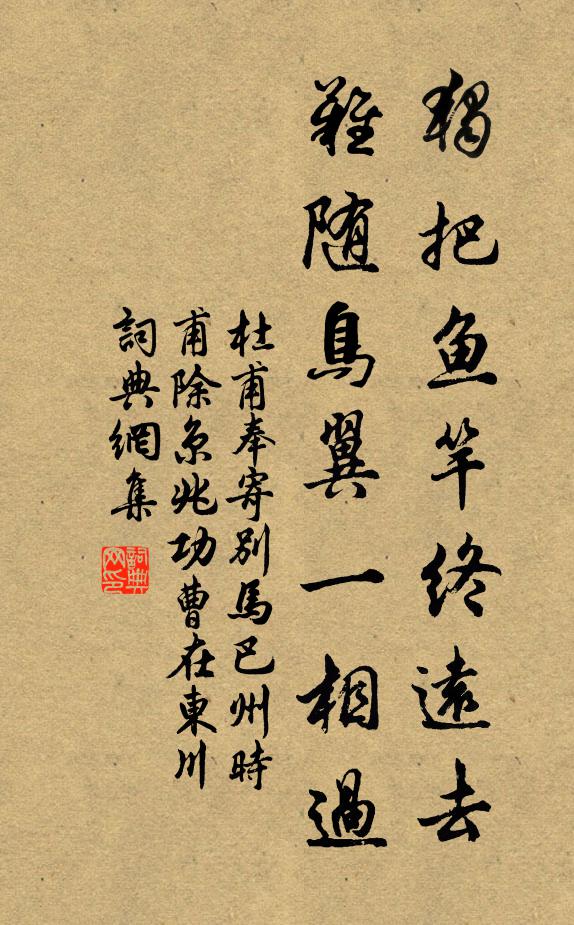 獨把鱼竿终遠去
難随鳥翼一相過
杜甫奉寄别馬巴州時
甫除京兆功曹在東川
詞典網集
詞典网印